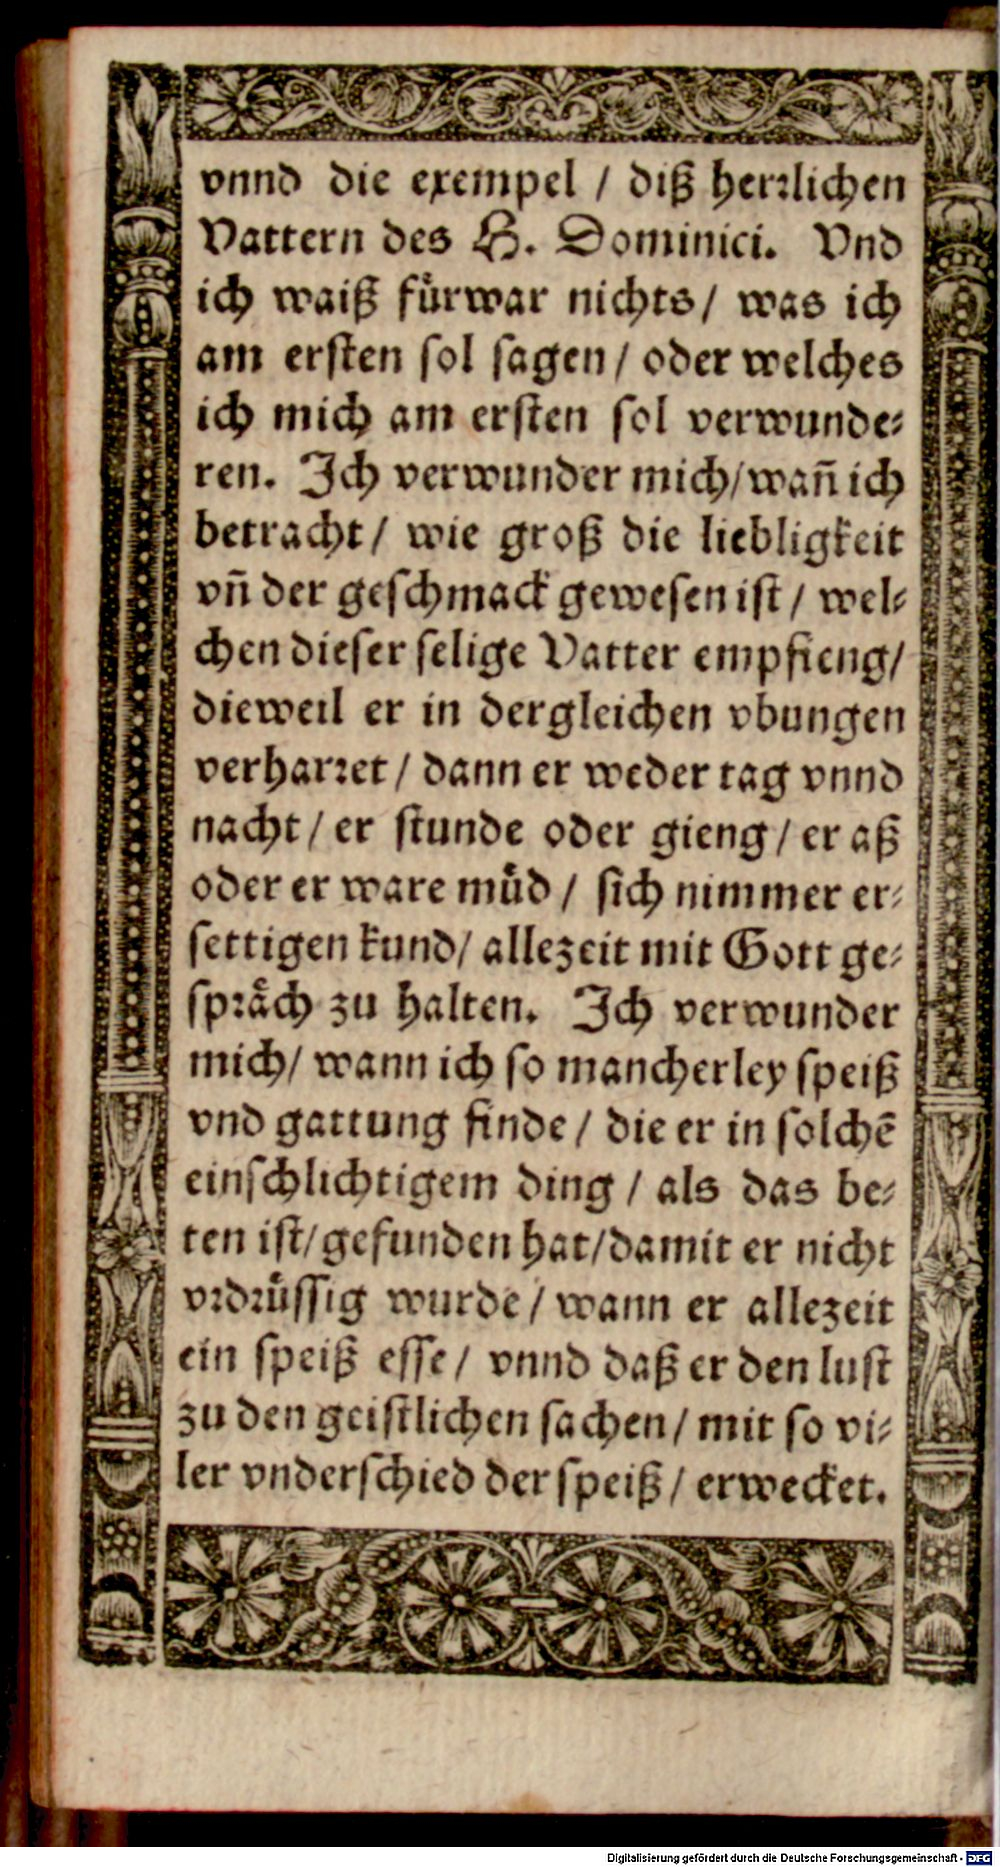 vnnd die exempel / diß herꝛlichen
Vattern des H. Dominici. Vnd
ich waiß fuͤrwar nichts / was ich
am ersten sol sagen / oder welches
ich mich am ersten sol verwunde⸗
ren. Ich verwunder mich / wañ ich
betracht / wie groß die liebligkeit
vñ der geschmack gewesen ist / wel⸗
chen dieser selige Vatter empfieng /
dieweil er in dergleichen vbungen
verharꝛet / dann er weder tag vnnd
nacht / er stunde oder gieng / er aß
oder er ware muͤd / sich nimmer er⸗
settigen kund / allezeit mit Gott ge⸗
spꝛaͤch zu halten. Ich verwunder
mich / wann ich so mancherley speiß
vnd gattung finde / die er in solchẽ
einschlichtigem ding / als das be⸗
ten ist / gefunden hat / damit er nicht
vꝛdꝛuͤssig wurde / wann er allezeit
ein speiß esse / vnnd daß er den lust
zu den geistlichen sachen / mit so vi⸗
ler vnderschied der speiß / erwecket.
Digitalisierung gefördert durch die Deutsche Forschungsgemeinschaft - DFG